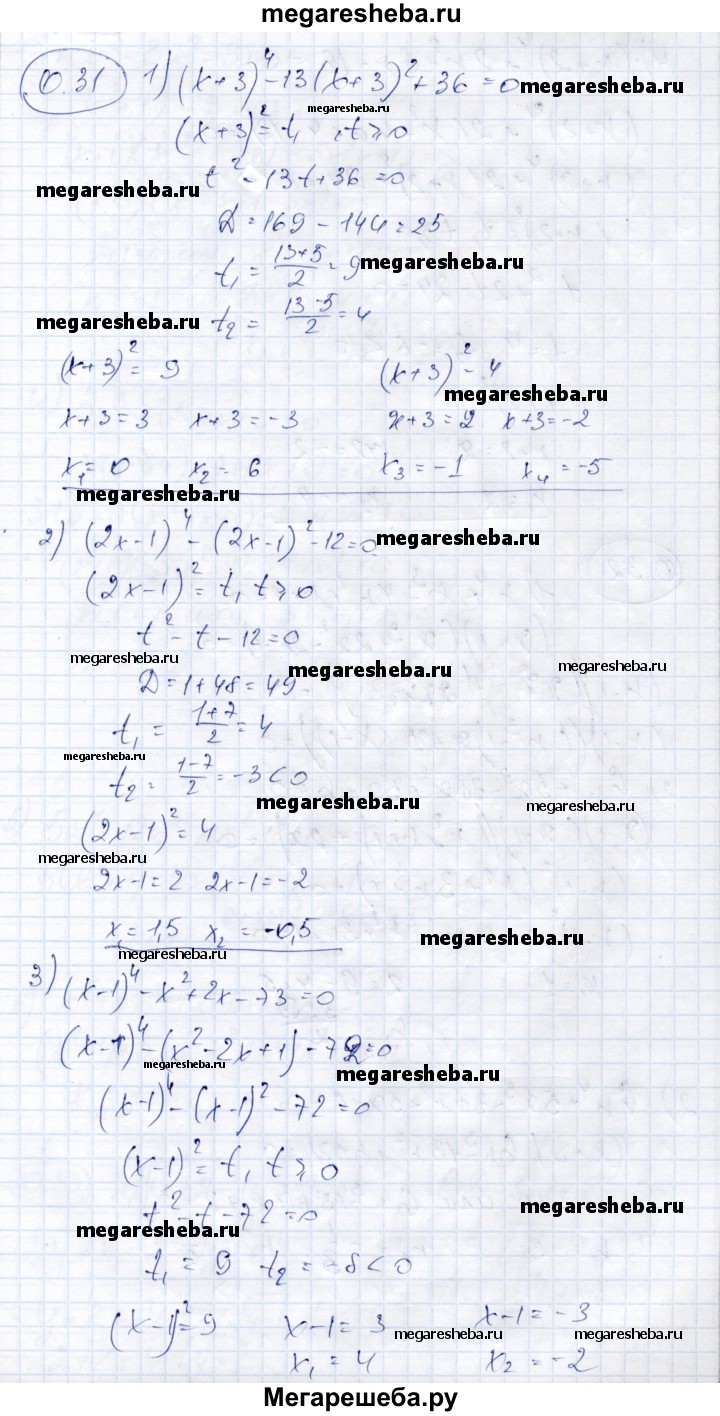 megaresheba.ru
0.31 1) (x+3)⁴-13(x+3)²+36=0 megaresheba.ru
megaresheba.ru
(x+3)²=t, t≥0
t²-13t+36=0
megaresheba.ru
D=169-144=25
t₁=(13+5)/2=9 megaresheba.ru
megaresheba.ru t₂=(13-5)/2=4
(x+3)²=9 (x+3)²=4
megaresheba.ru
x+3=3 x+3=-3 x+3=2 x+3=-2
x₁=0 x₂=6 x₃=-1 x₄=-5
megaresheba.ru
2) (2x-1)⁴-(2x-1)²-12=0 megaresheba.ru
(2x-1)²=t, t≥0
t²-t-12=0
megaresheba.ru megaresheba.ru megaresheba.ru
D=1+48=49
t₁=(1+7)/2=4
megaresheba.ru
t₂=(1-7)/2=-3<0
megaresheba.ru megaresheba.ru
(2x-1)²=4
megaresheba.ru
2x-1=2 2x-1=-2
x₁=1,5 x₂=-0,5 megaresheba.ru
megaresheba.ru
3) (x-1)⁴-x²+2x-73=0
(x-1)⁴-(x²-2x+1)-72=0
megaresheba.ru megaresheba.ru
(x-1)⁴-(x-1)²-72=0
(x-1)²=t, t≥0
t²-t-72=0 megaresheba.ru
megaresheba.ru
t₁=9 t₂=-8<0
(x-1)²=9 x-1=3 x-1=-3
megaresheba.ru megaresheba.ru
x₁=4 x₂=-2
Мегарешеба.ру